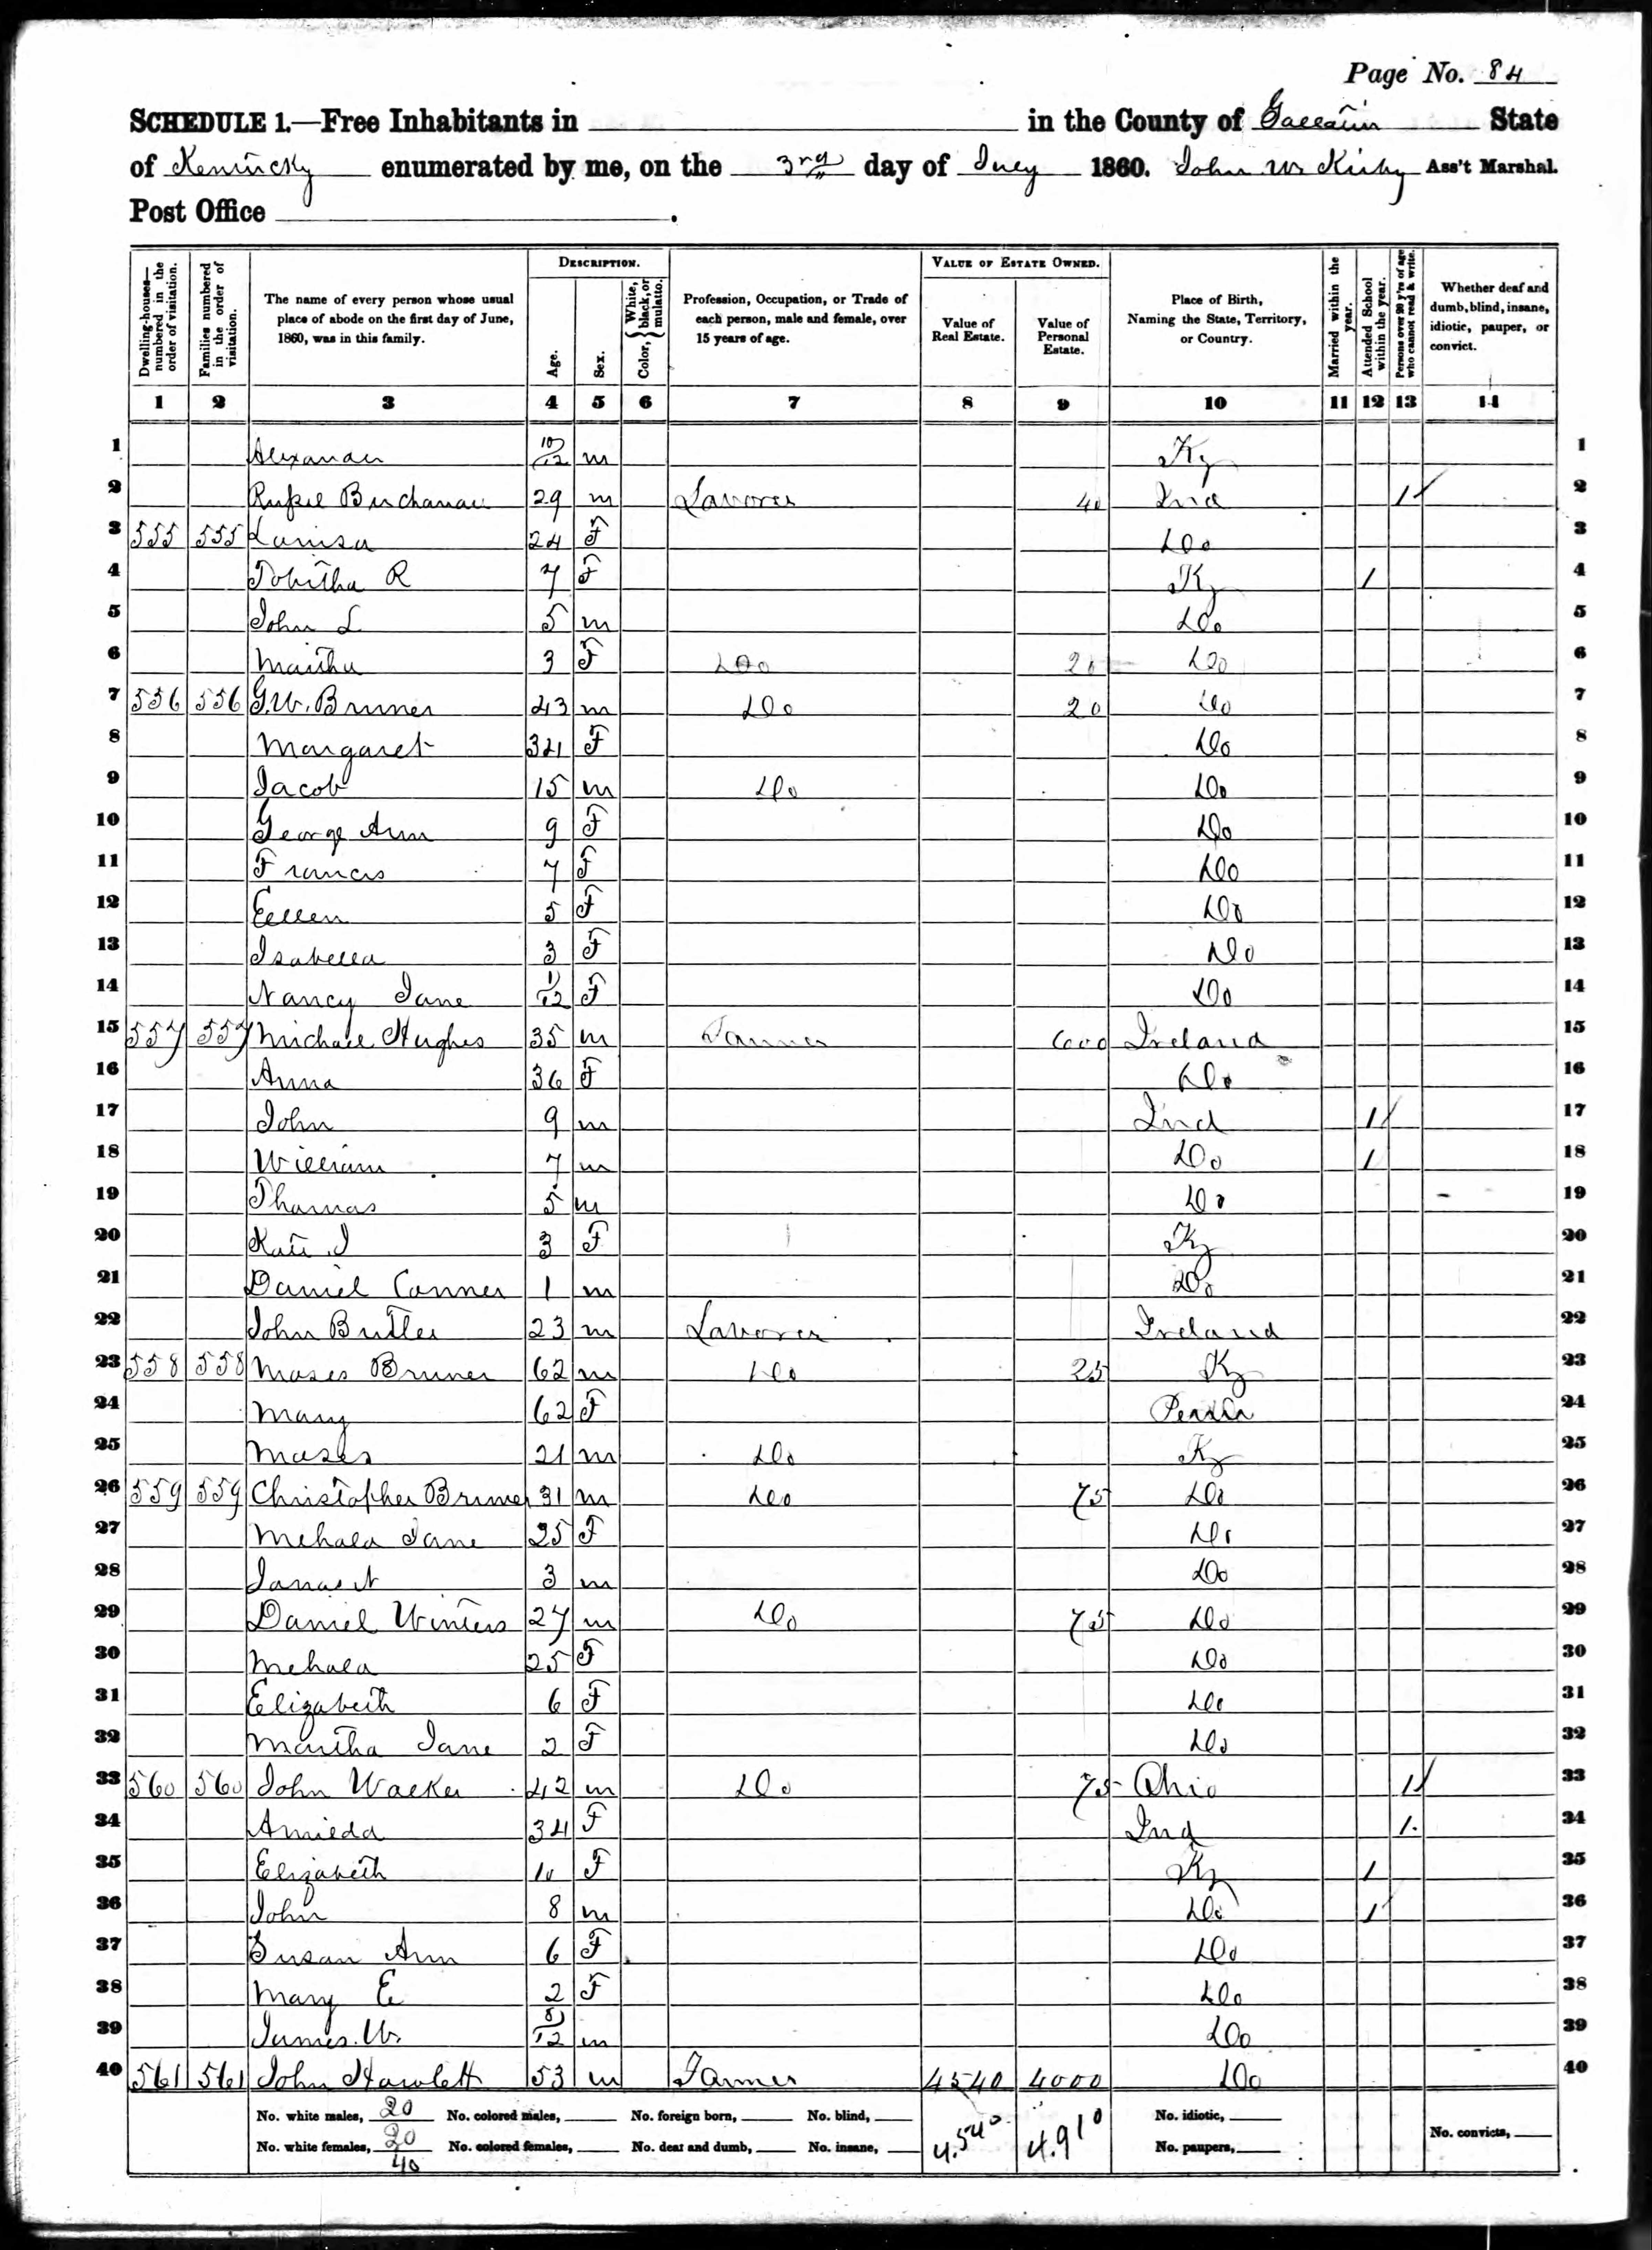 Page No. 84
SCHEDULE 1.—Free Inhabitants in in the County of Gallatin State
of Kentucky enumerated by me, on the 3rd day of July 1860. John W. Kirby Ass't Marshal.
Post Office .
Dwelling-houses—numbered in the order of visitation.
Families numbered in the order of visitation.
The name of every person whose usual place of abode on the first day of June, 1860, was in this family.
DESCRIPTION.
Age.
Sex.
Color, { White, black, or mulatto.
Profession, Occupation, or Trade of each person, male and female, over 15 years of age.
VALUE OF ESTATE OWNED.
Value of Real Estate.
Value of Personal Estate.
Place of Birth, Naming the State, Territory, or Country.
Married within the year.
Attended School within the year.
Persons over 20 y'rs of age who cannot read & write.
Whether deaf and dumb, blind, insane, idiotic, pauper, or convict.
1 2 3 4 5 6 7 8 9 10 11 12 13 14
1 Alexander 10/12 m Ky 1
2 Buchanan 29 m Laborer 40 Ind 1 2
3 555 555 Louisa 24 F Do 3
4 Tobitha R 7 F Ky 1 4
5 John L 5 m Do 5
6 Martha 3 F Do 20 Do 6
7 556 556 G.W. Bruner 43 m Do 20 Do 7
8 Margaret 34 F Do 8
9 Jacob 15 m Do Do 9
10 George Ann 9 F Do 10
11 Francis 7 F Do 11
12 Ellen 5 F Do 12
13 Isabella 3 F Do 13
14 Nancy Jane 1/12 F Do 14
15 557 557 Michael Hughes 35 m Farmer 600 Ireland 15
16 Anna 36 F Do 16
17 John 9 m Ind 1 17
18 William 7 m Do 1 18
19 Thomas 5 m Do 19
20 Kate J 3 F Ky 20
21 Daniel Conner 1 m Do 21
22 John Butler 23 m Laborer Ireland 22
23 558 558 Moses Bruner 62 m Do 25 Ky 23
24 Mary 62 F 24
25 Moses 21 m Do Ky 25
26 559 559 Christopher Bruner 31 m Do 75 Do 26
27 Mehala Jane 25 F Do 27
28 3 m Do 28
29 Daniel Winters 27 m Do 75 Do 29
30 Mehala 25 F Do 30
31 Elizabeth 6 F Do 31
32 Martha Jane 2 F Do 32
33 560 560 John Walker 42 m Do 75 Ohio 1 33
34 34 F Ind 1 34
35 Elizabeth 10 F Ky 1 35
36 John 8 m Do 1 36
37 Susan Ann 6 F Do 37
38 Mary E 2 F Do 38
39 James W. 8/12 m Do 39
40 561 561 John Howlett 53 m Farmer 4540 4000 Do 40
No. white males, 20 No. colored males, No. foreign born, No. blind, 4.540 4.910 No. idiotic,
No. white females, 20 No. colored females, No. deaf and dumb, No. insane, No. paupers, No. convicts,
40